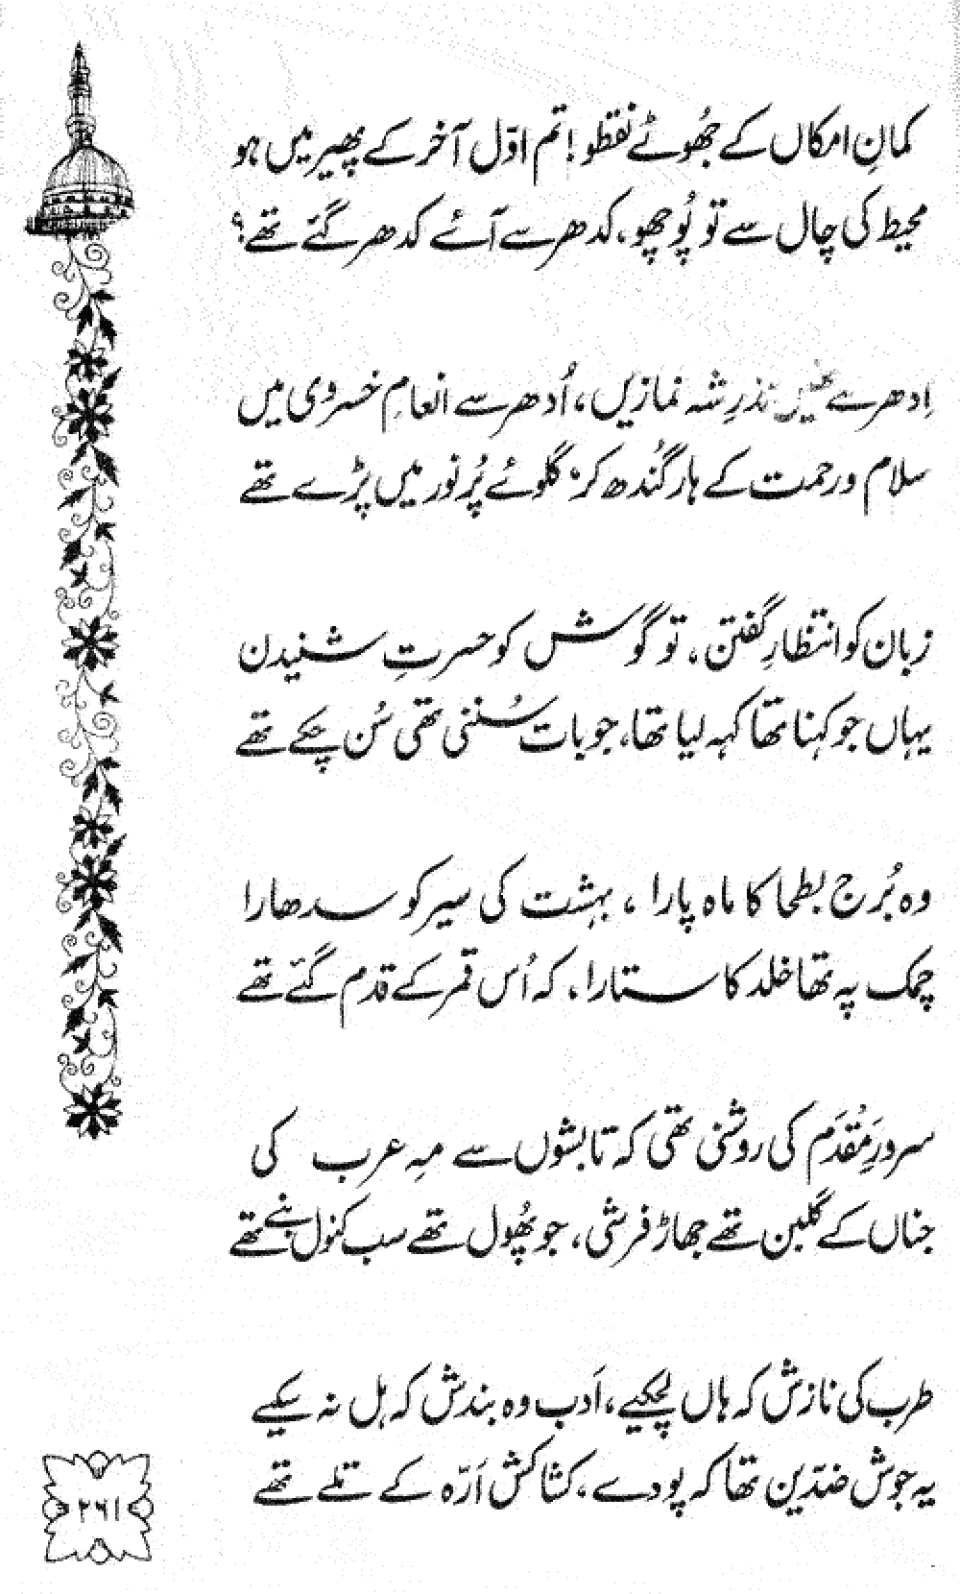 کمانِ امکاں کے جُھوٹے نقطو! تم اوّل آخر کے پھیر میں ہو
محیط کی چال سے تو پُوچھو، کدھر سے آئے کدھر گئے تھے؟
اِدھر سے تھیں نذرِ شہ نمازیں، اُدھر سے انعامِ خسروی میں
سلام و رحمت کے ہار گُندھ کر، گلوئے پُر نور میں پڑے تھے
زبان کو انتظارِ گفتن، تو گوش کو حسرتِ شنیدن
یہاں جو کہنا تھا کہہ لیا تھا، جو بات سُننی تھی سُن چکے تھے
وہ بُرج بطحا کا ماہ پارا، بہشت کی سیر کو سدھارا
چمک پہ تھا خلد کا ستارا، کہ اُس قمر کے قدم گئے تھے
سرورِ مَقْدَم کی روشنی تھی کہ تابشوں سے مہِ عرب کی
جناں کے گلبن تھے جھاڑ فرشی، جو پُھول تھے سب کنول بنے تھے
طرب کی نازش کہ ہاں لچکیے، اَدب وہ بندش کہ ہل نہ سکیے
یہ جوش ضدّین تھا کہ پودے، کشاکش اَرّہ کے تلے تھے
۲۶۱